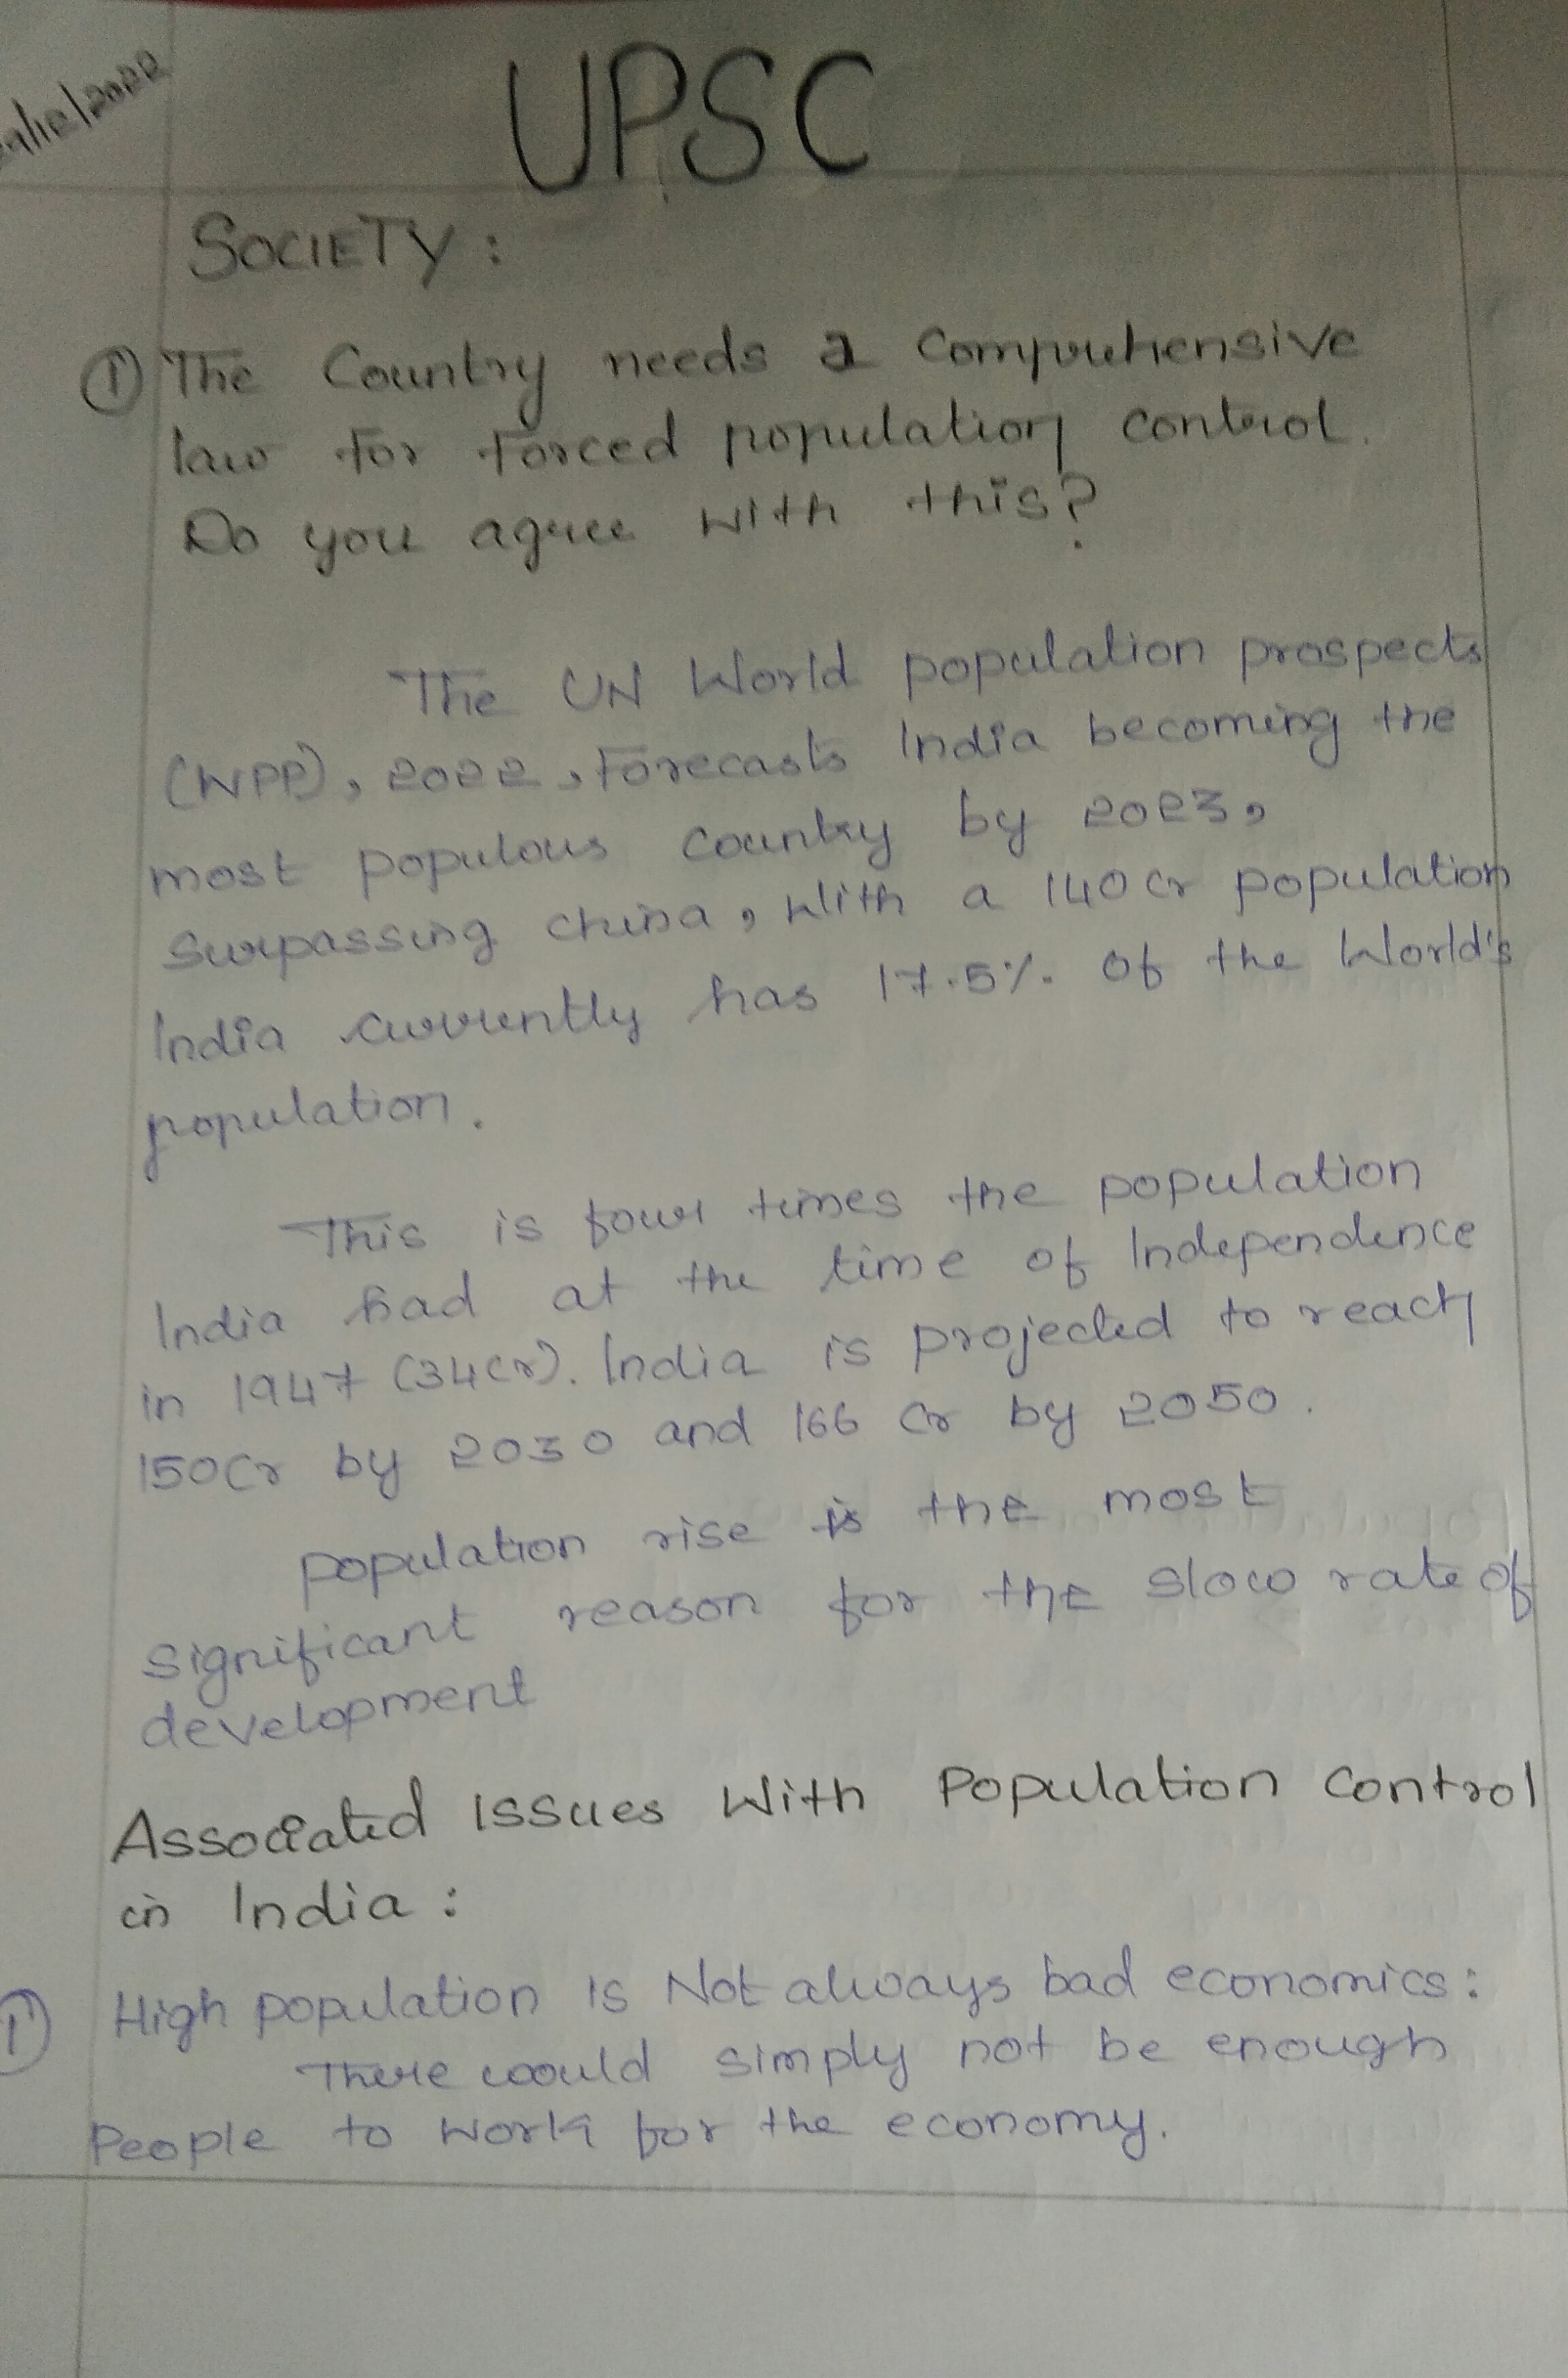 /12/2022
UPSC
SOCIETY :
① The Country needs a Comprehensive
law for Forced population control.
Do you agree with this?
The UN World population prospects
(WPP), 2022, Forecasts India becoming the
most populous country by 2023,
surpassing china, With a 140 cr population
India currently has 17.5% of the World's
population.
This is four times the population
India had at the time of Independence
in 1947 (34cr). India is projected to reach
150Cr by 2030 and 166 Cr by 2050.
population rise is the most
significant reason for the slow rate of
development
Associated Issues With Population Control
in India :
① High population is Not always bad economics :
There would simply not be enough
People to work for the economy.